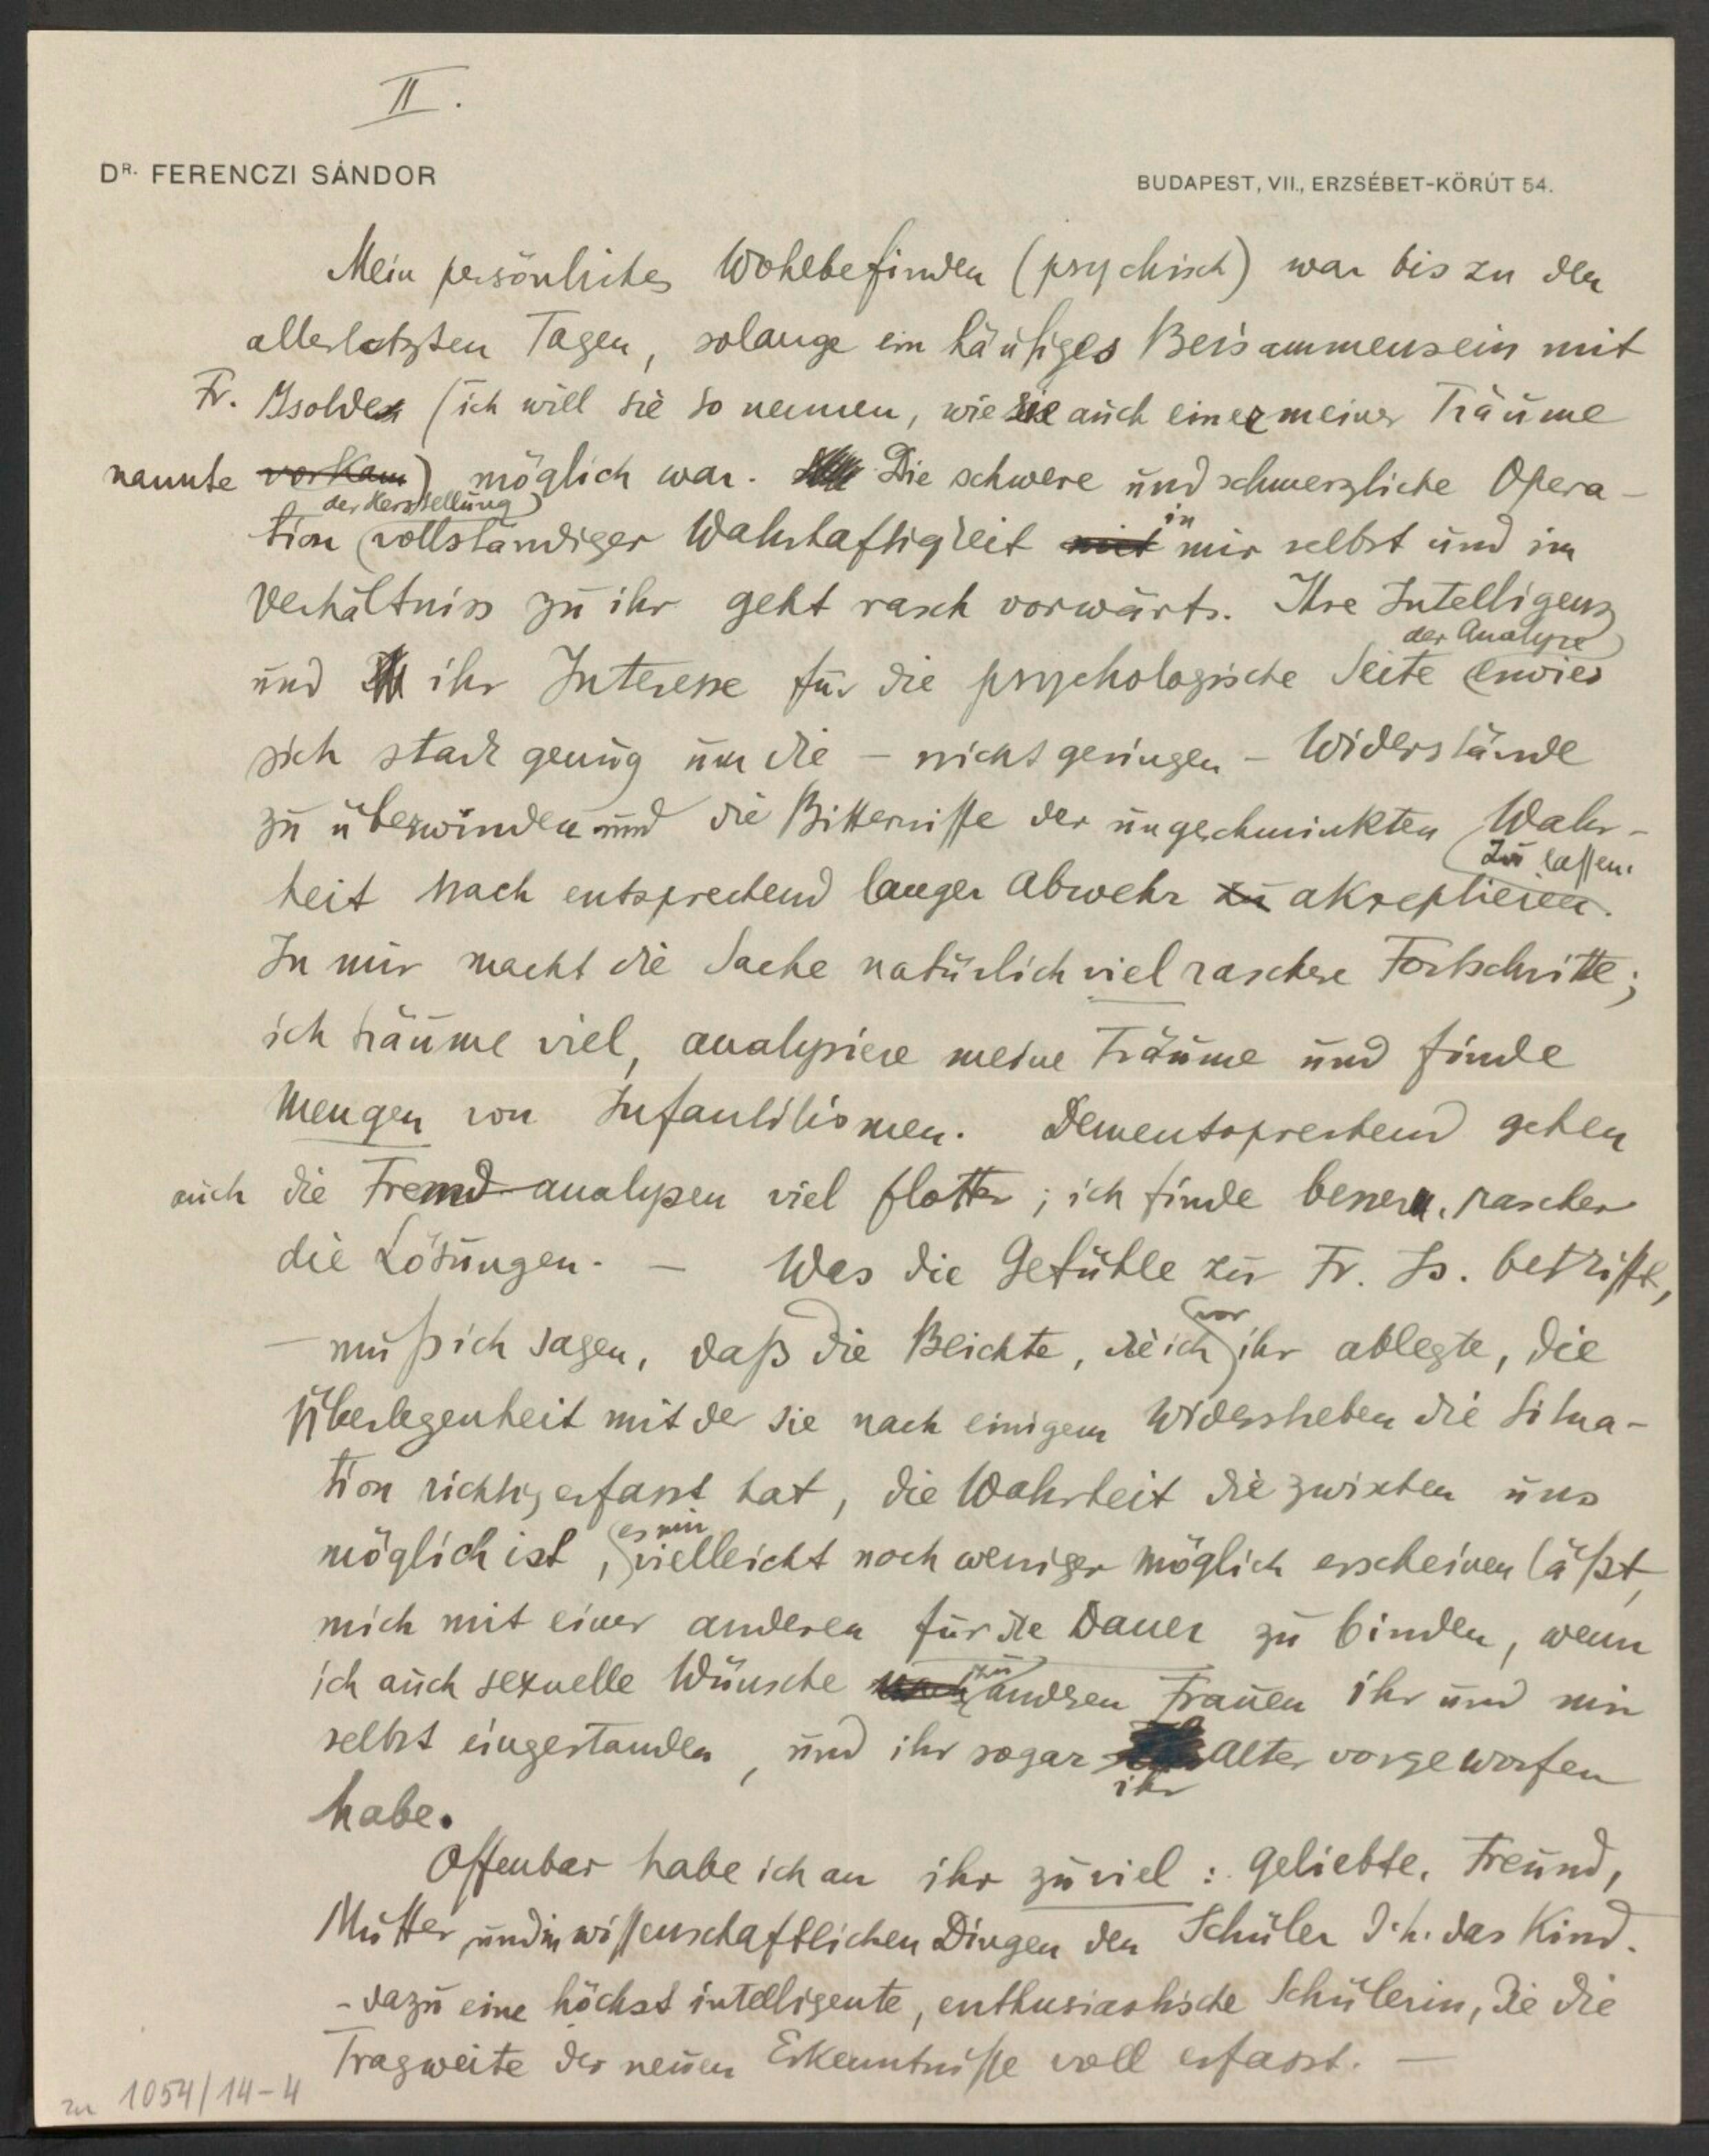 II.
DR. FERENCZI SÁNDOR
BUDAPEST, VII., ERZSÉBET-KÖRÚT 54.
Mein persönliches Wohlbefinden (psychisch) war bis zu den
allerletzten Tagen, solange ein häufiges Beisammensein mit
Fr. Isolde (ich will sie so nennen, wie sie auch einer meiner Träume
nannte vorkam) möglich war. Die schwere und schmerzliche Opera-
der Herstellung
tion vollständiger Wahrhaftigkeit mit in mir selbst und im
Verhältniss zu ihr geht rasch vorwärts. Ihre Intelligenz
der Analyse
und ihr Interesse für die psychologische Seite erwies
sich stark genug um die – nicht geringen – Widerstände
zu überwinden und die Bitternisse der ungeschminkten Wahr-
zu lassen.
heit nach entsprechend langer Abwehr zu akzeptieren.
In mir macht die Sache natürlich viel raschere Fortschritte;
ich träume viel, analysiere meine Träume und finde
Mengen von Infantilismen. Dementsprechend gehen
auch die Fremd-analysen viel flotter; ich finde besser u. rascher
die Lösungen. – Was die Gefühle zu Fr. Is. betrifft,
– muß ich sagen, daß die Beichte, die ich vor ihr ablegte, die
Überlegenheit mit der sie nach einigem Widerstreben die Situa-
tion richtig erfasst hat, die Wahrheit die zwischen uns
möglich ist, es mir vielleicht noch weniger möglich erscheinen läßt,
mich mit einer anderen für die Dauer zu binden, wenn
ich auch sexuelle Wünsche nach zu andren Frauen ihr und mir
selbst eingestanden, und ihr sogar ihr Alter vorgeworfen
habe.
Offenbar habe ich an ihr zuviel: Geliebte, Freund,
Mutter und in wissenschaftlichen Dingen den Schüler d.h. das Kind.
– dazu eine höchst intelligente, enthusiastische Schülerin, die die
Tragweite der neuen Erkenntnisse voll erfasst. –
zu 1054/14-4